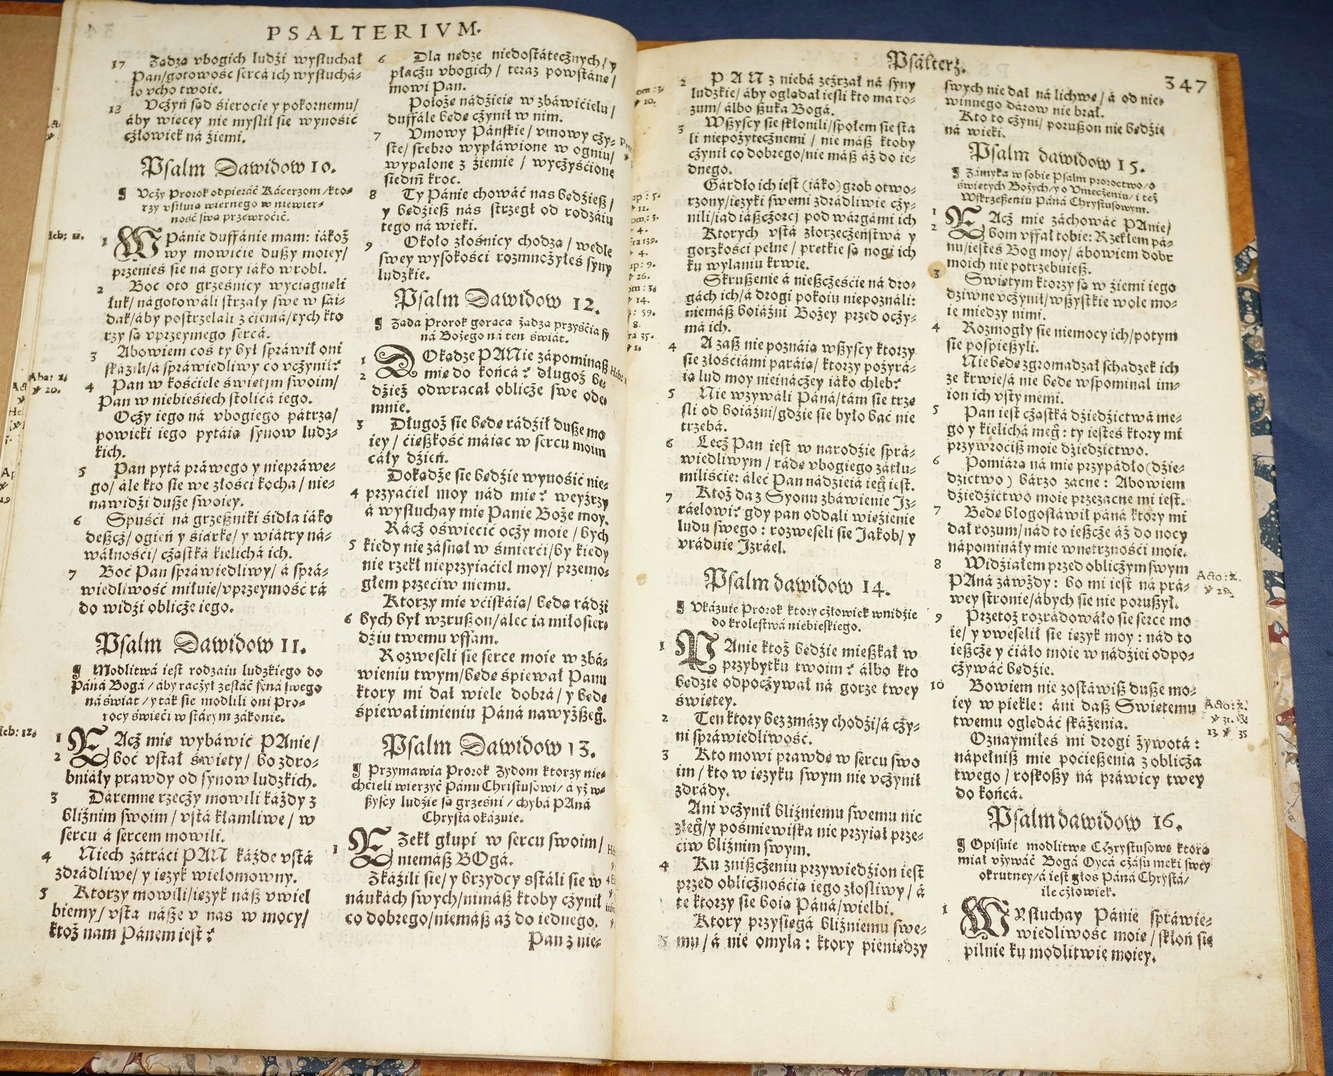 PSALTERIVM.
17 Żądzą vbogich ludzi wysłuchał
Pan/gotowość serca ich wysłuchá-
ło vcho twoie.
18 Vczyń sąd sierocie y pokornemu/
áby więcey nie myślił się wynośić
człowiek ná źiemi.
Psalm Dawidow 10.
¶ Vczy Prorok odpieráć Kácerzom/kto-
rzy vśiłuią wiernego w niewier-
ność swą przewroćić.
1 W Pánie duffanie mam: iákoż
wy mowićie duszy moiey/
przenieś się ná gory iáko wrobl.
2 Boć oto grzesnicy wyciągnęli
łuk/nágotowáli strzały swe w sái-
dak/áby postrzeláli z ciemá/tych kto
rzy są vprzeymego sercá.
3 Abowiem coś ty był spráwił oni
skáźili/á spráwiedliwy co vczynił?
4 Pan w kośćiele świętym swoim/
Pan w niebieśiech stolicá iego.
Oczy iego ná vbogiego pátrzą/
powieki iego pytáią synow ludz-
kich.
5 Pan pyta práwego y niepráwe-
go/ále kto się we złośći kocha/nie-
nawidźi duszę swoiey.
6 Spuśći ná grzeszniki śidłá iáko
deszcz/ogień y śiárkę/y wiátry ná-
wáłnośći/cząstká kielichá ich.
7 Boć Pan spráwiedliwy/á sprá-
wiedliwość miłuie/vprzeymość rá
do widźi oblicze iego.
Psalm Dawidow 11.
¶ Modlitwá iest rodzáiu ludzkiego do
Páná Bogá/áby raczył zesłáć syná swego
ná świát/y ták się modlili oni Pro-
rocy święći w stárym zakonie.
1 RAcz mię wybáwić PAnie/
2 boć vstał święty/bo zdro-
bniáły prawdy od synow ludzkich.
3 Dáremne rzeczy mowili káżdy z
bliźnim swoim/vstá kłamliwe/w
sercu á sercem mowili.
4 Niech zátráci PAN káżde vstá
zdrádliwe/y ięzyk wielomowny.
5 Ktorzy mowili/ięzyk nász vwiel
biemy/vstá násze v nas w mocy/
ktoż nam Pánem iest?
6 Dla nędze niedostátecznych/y
płáczu vbogich/teraz powstánę/
mowi Pan.
Położę nádźieię w zbáwićielu/
duffále będę czynił w nim.
7 Vmowy Páńskie/vmowy czy-
ste/srebro wypławione w ogniu/
wypalone z źiemie/wyczyśćione
śiedm kroć.
8 Ty Pánie chowáć nas będźiesz/
y będźiesz nás strzegł od rodzáiu
tego ná wieki.
9 Około złośnicy chodzą/wedle
swey wysokośći rozmnożyłeś syny
ludzkie.
Psalm Dawidow 12.
¶ Żąda Prorok gorącą żądzą przyśćia sy
ná Bożego ná ten świát.
1 DOkądże PANie zápominasz
2 mię do końcá? długoż bę-
dźiesz odwracał oblicze swe ode
mnie.
3 Długoż się będę rádźił duszę mo
iey/ćięszkość máiąc w sercu moim
cáły dźień.
Dokądże się będźie wynośić nie-
4 przyiaćiel moy nád mię? weyźrzy
á wysłuchay mię Pánie Boże moy.
Rácz oświećić oczy moie/bych
5 kiedy nie zásnął w śmierći/by kiedy
nie rzekł nieprzyiaćiel moy/przemo-
głem przećiw niemu.
Ktorzy mię vćiskáią/będą rádźi
6 bych był wzruszon/álec ia miłośier-
dźiu twemu vffam.
Rozweseli się serce moie w zbá-
wieniu twym/będę śpiewał Pánu
ktory mi dał wiele dobrá/y będę
śpiewał imieniu Páná nawyższeg.
Psalm Dawidow 13.
¶ Przymawia Prorok Żydom ktorzy nie-
chćieli wierzyć Pánu Christusowi/á yż w-
szyscy ludźie są grzeszni/chybá PAná
Chrystá okázuie.
1 RZekł głupi w sercu swoim/
niemász BOgá.
Skáźili się/y brzydcy sstáli się w
náukách swych/nimász ktoby czynił
co dobrego/niemász áż do iednego.
Pan z nie-
Psałterz.
347
2 PAN z niebá zeźrzał ná syny
ludzkie/áby oglądał iesli kto ma ro-
zum/álbo szuka Bogá.
3 Wszyscy się skłonili/społem się sta
li niepożytecznemi/nie mász ktoby
czynił co dobrego/nie mász áż do ie-
dnego.
Gárdło ich iest (iáko) grob otwo-
rzony/ięzyki swemi zdrádliwie czy-
nili/iad iászczorcy pod wárgámi ich
Ktorych vstá złorzeczeństwá y
gorzkośći pełne/prętkie są nogi ich
ku wylaniu krwie.
Skruszenie á nieszczęśćie ná dro-
gách ich/á drogi pokoiu niepoználi:
niemász boiáźni Bożey przed oczy-
má ich.
4 A zasz nie poznáią wszyscy ktorzy
się złośćiámi páráią/ktorzy pożyrá-
ią lud moy nieináczey iáko chleb?
5 Nie wzywáli Páná/tám się trzę
sli od boiáźni/gdźie się było bać nie
trzebá.
6 Lecz Pan iest w narodźie sprá-
wiedliwym/rádę vbogiego zátłu-
miliśćie: álec Pan nádźieiá ieg iest.
7 Ktoż da z Syonu zbáwienie Iz-
ráelowi? gdy pan oddali więźienie
ludu swego: rozweseli się Jakob/y
vráduie Izráel.
Psalm dawidow 14.
¶ Vkázuie Prorok ktory człowiek wnidźie
do krolestwá niebieskiego.
1 PAnie ktoż będźie mieszkał w
przybytku twoim? álbo kto
będźie odpoczywał ná gorze twey
świętey.
2 Ten ktory bez zmázy chodźi/á czy-
ni spráwiedliwość.
3 Kto mowi prawdę w sercu swo
im/kto w ięzyku swym nie vczynił
zdrády.
Ani vczynił bliźniemu swemu nic
złeg/y pośmiewiská nie przyiął prze-
ćiw bliźnim swym.
4 Ku zniszczeniu przywiedźion iest
przed oblicznośćią iego złośliwy/á
te ktorzy się boią Páná/wielbi.
Ktory przyśięga bliźniemu swe-
mu/á nie omyla: ktory pieniędzy
swych nie dał ná lichwę/á od nie-
winnego dárow nie brał.
Kto to czyni/poruszon nie będźie
ná wieki.
Psalm dawidow 15.
¶ Zámyka w sobie Psalm proroctwo/o
świętych Bożych/y o Vmęczeniu/i też
Wskrzeszeniu Páná Chrystusowym.
1 RAcz mię záchowáć PAnie/
2 bom vffał tobie: Rzekłem pá-
nu/iesteś Bog moy/ábowiem dobr
moich nie potrzebuiesz.
3 Świętym ktorzy są w źiemi iego
dźiwnie vczynił/wszystkie wole mo-
ie między nimi.
4 Rozmogły się niemocy ich/potym
się pośpieszyli.
Nie będę zgromadzał schadzek ich
ze krwie/á nie będę wspominał im-
ion ich vsty memi.
5 Pan iest cząstká dźiedźictwá me-
go y kielichá meg: ty iesteś ktory mi
przywroćisz moie dźiedźictwo.
6 Pomiárá ná mię przypádło (dźie-
dźictwo) bárzo zacne: Abowiem
dźiedźictwo moie przezacne mi iest.
7 Będę błogosłáwił páná ktory mi
dał rozum/nád to ieszcze áż do nocy
nápomináły mię wnętrznośći moie.
8 Widźiałem przed obliczym swym
PAná záwżdy: bo mi iest ná prá-
wey stronie/ábych się nie poruszył.
9 Przetoż rozrádowáło się serce mo
ie/y vweselił się ięzyk moy: nád to
ieszcze y ćiáło moie w nádźiei odpo-
czywáć będźie.
10 Bowiem nie zostáwisz dusze mo-
iey w piekle: áni dasz Świętemu
twemu oglądáć skáżenia.
Oznaymiłeś mi drogi żywotá:
nápełnisz mię poćieszenia z obliczá
twego/roskoszy ná práwicy twey
do końcá.
Psalm dawidow 16.
¶ Opisuie modlitwę Chrystusowę ktorą
miał vżywáć Bogá Oycá czásu męki swey
okrutney/á iest głos Páná Chrystá/
ile człowiek.
1 WYsłuchay Pánie spráwie-
wiedliwość moię/skłoń się
pilnie ku modlitwie moiey.